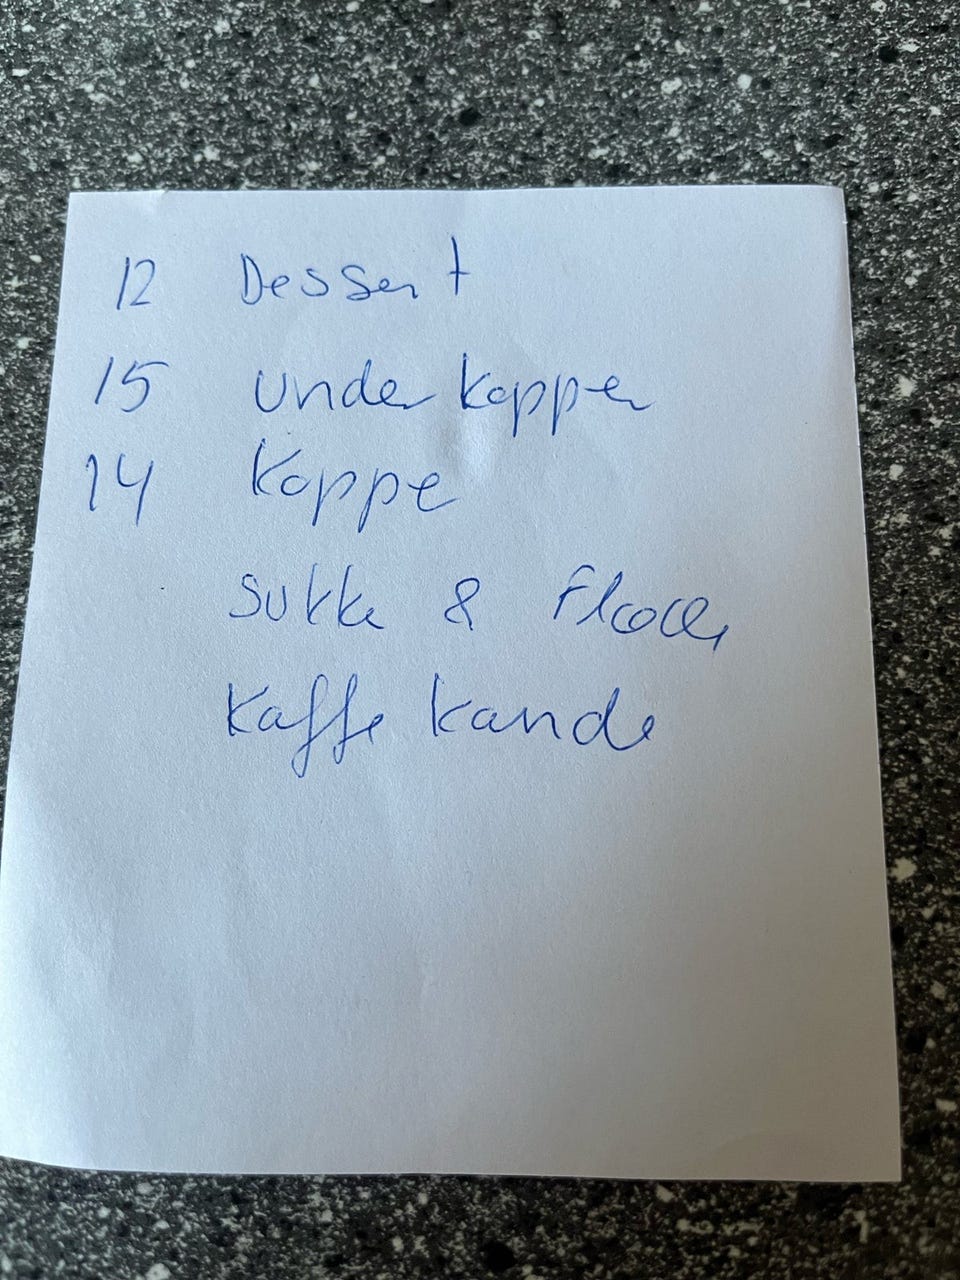 12 Dessert
15 under kopper
14 Koppe
Sukke &
Kaffe kande